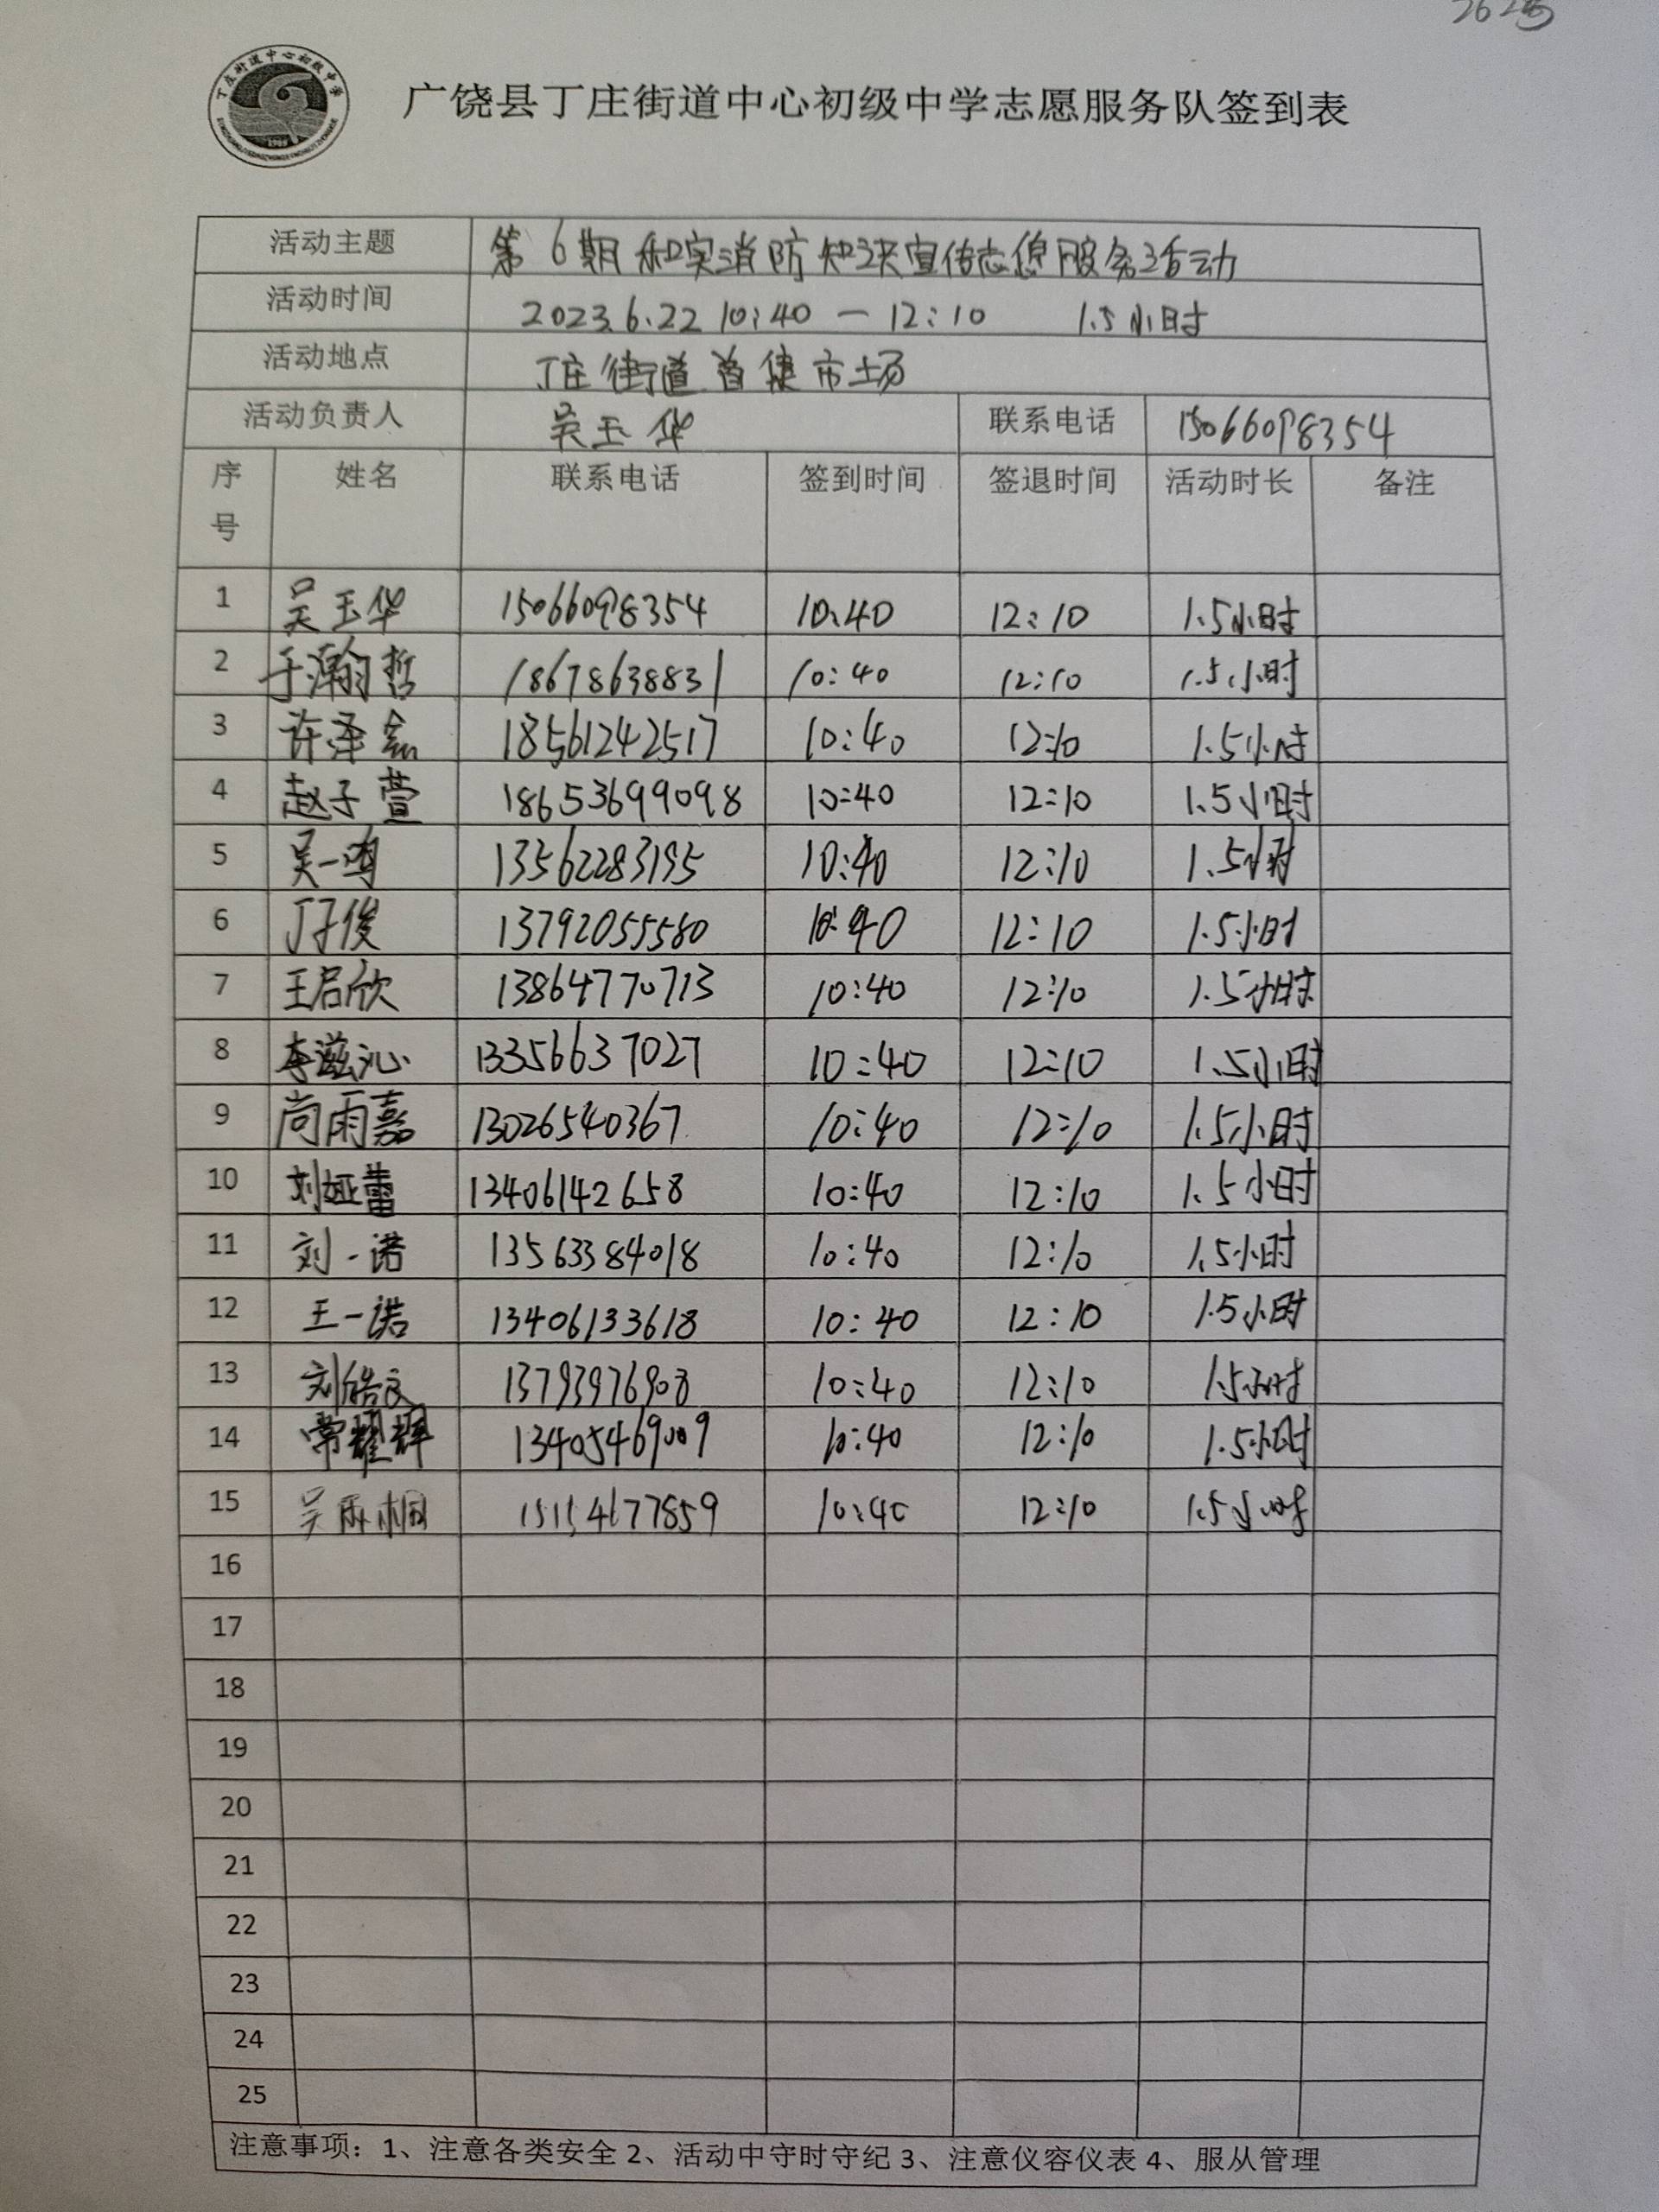 丁庄街道中心初级中学
广饶县丁庄街道中心初级中学志愿服务队签到表
活动主题 第6期和实消防知识宣传志愿服务活动
活动时间 2023.6.22 10:40 — 12:10 1.5小时
活动地点 丁庄街道 集市场
活动负责人 吴玉华 联系电话 15066098354
序号 姓名 联系电话 签到时间 签退时间 活动时长 备注
1 吴玉华 15066098354 10:40 12:10 1.5小时
2 于瀚哲 18678638831 10:40 12:10 1.5小时
3 许泽鑫 18561242517 10:40 12:10 1.5小时
4 赵子萱 18653699098 10:40 12:10 1.5小时
5 吴一鸣 13562283195 10:40 12:10 1.5小时
6 丁子俊 13792055580 10:40 12:10 1.5小时
7 王启欣 13864770713 10:40 12:10 1.5小时
8 李滋沁 13356637027 10:40 12:10 1.5小时
9 尚雨嘉 13026540367 10:40 12:10 1.5小时
10 刘娅蕾 13406142658 10:40 12:10 1.5小时
11 刘一诺 13563384018 10:40 12:10 1.5小时
12 王一诺 13406133618 10:40 12:10 1.5小时
13 刘皓文 13793976908 10:40 12:10 1.5小时
14 常耀辉 13405469009 10:40 12:10 1.5小时
15 吴雨桐 15154677859 10:40 12:10 1.5小时
16
17
18
19
20
21
22
23
24
25
注意事项：1、注意各类安全 2、活动中守时守纪 3、注意仪容仪表 4、服从管理